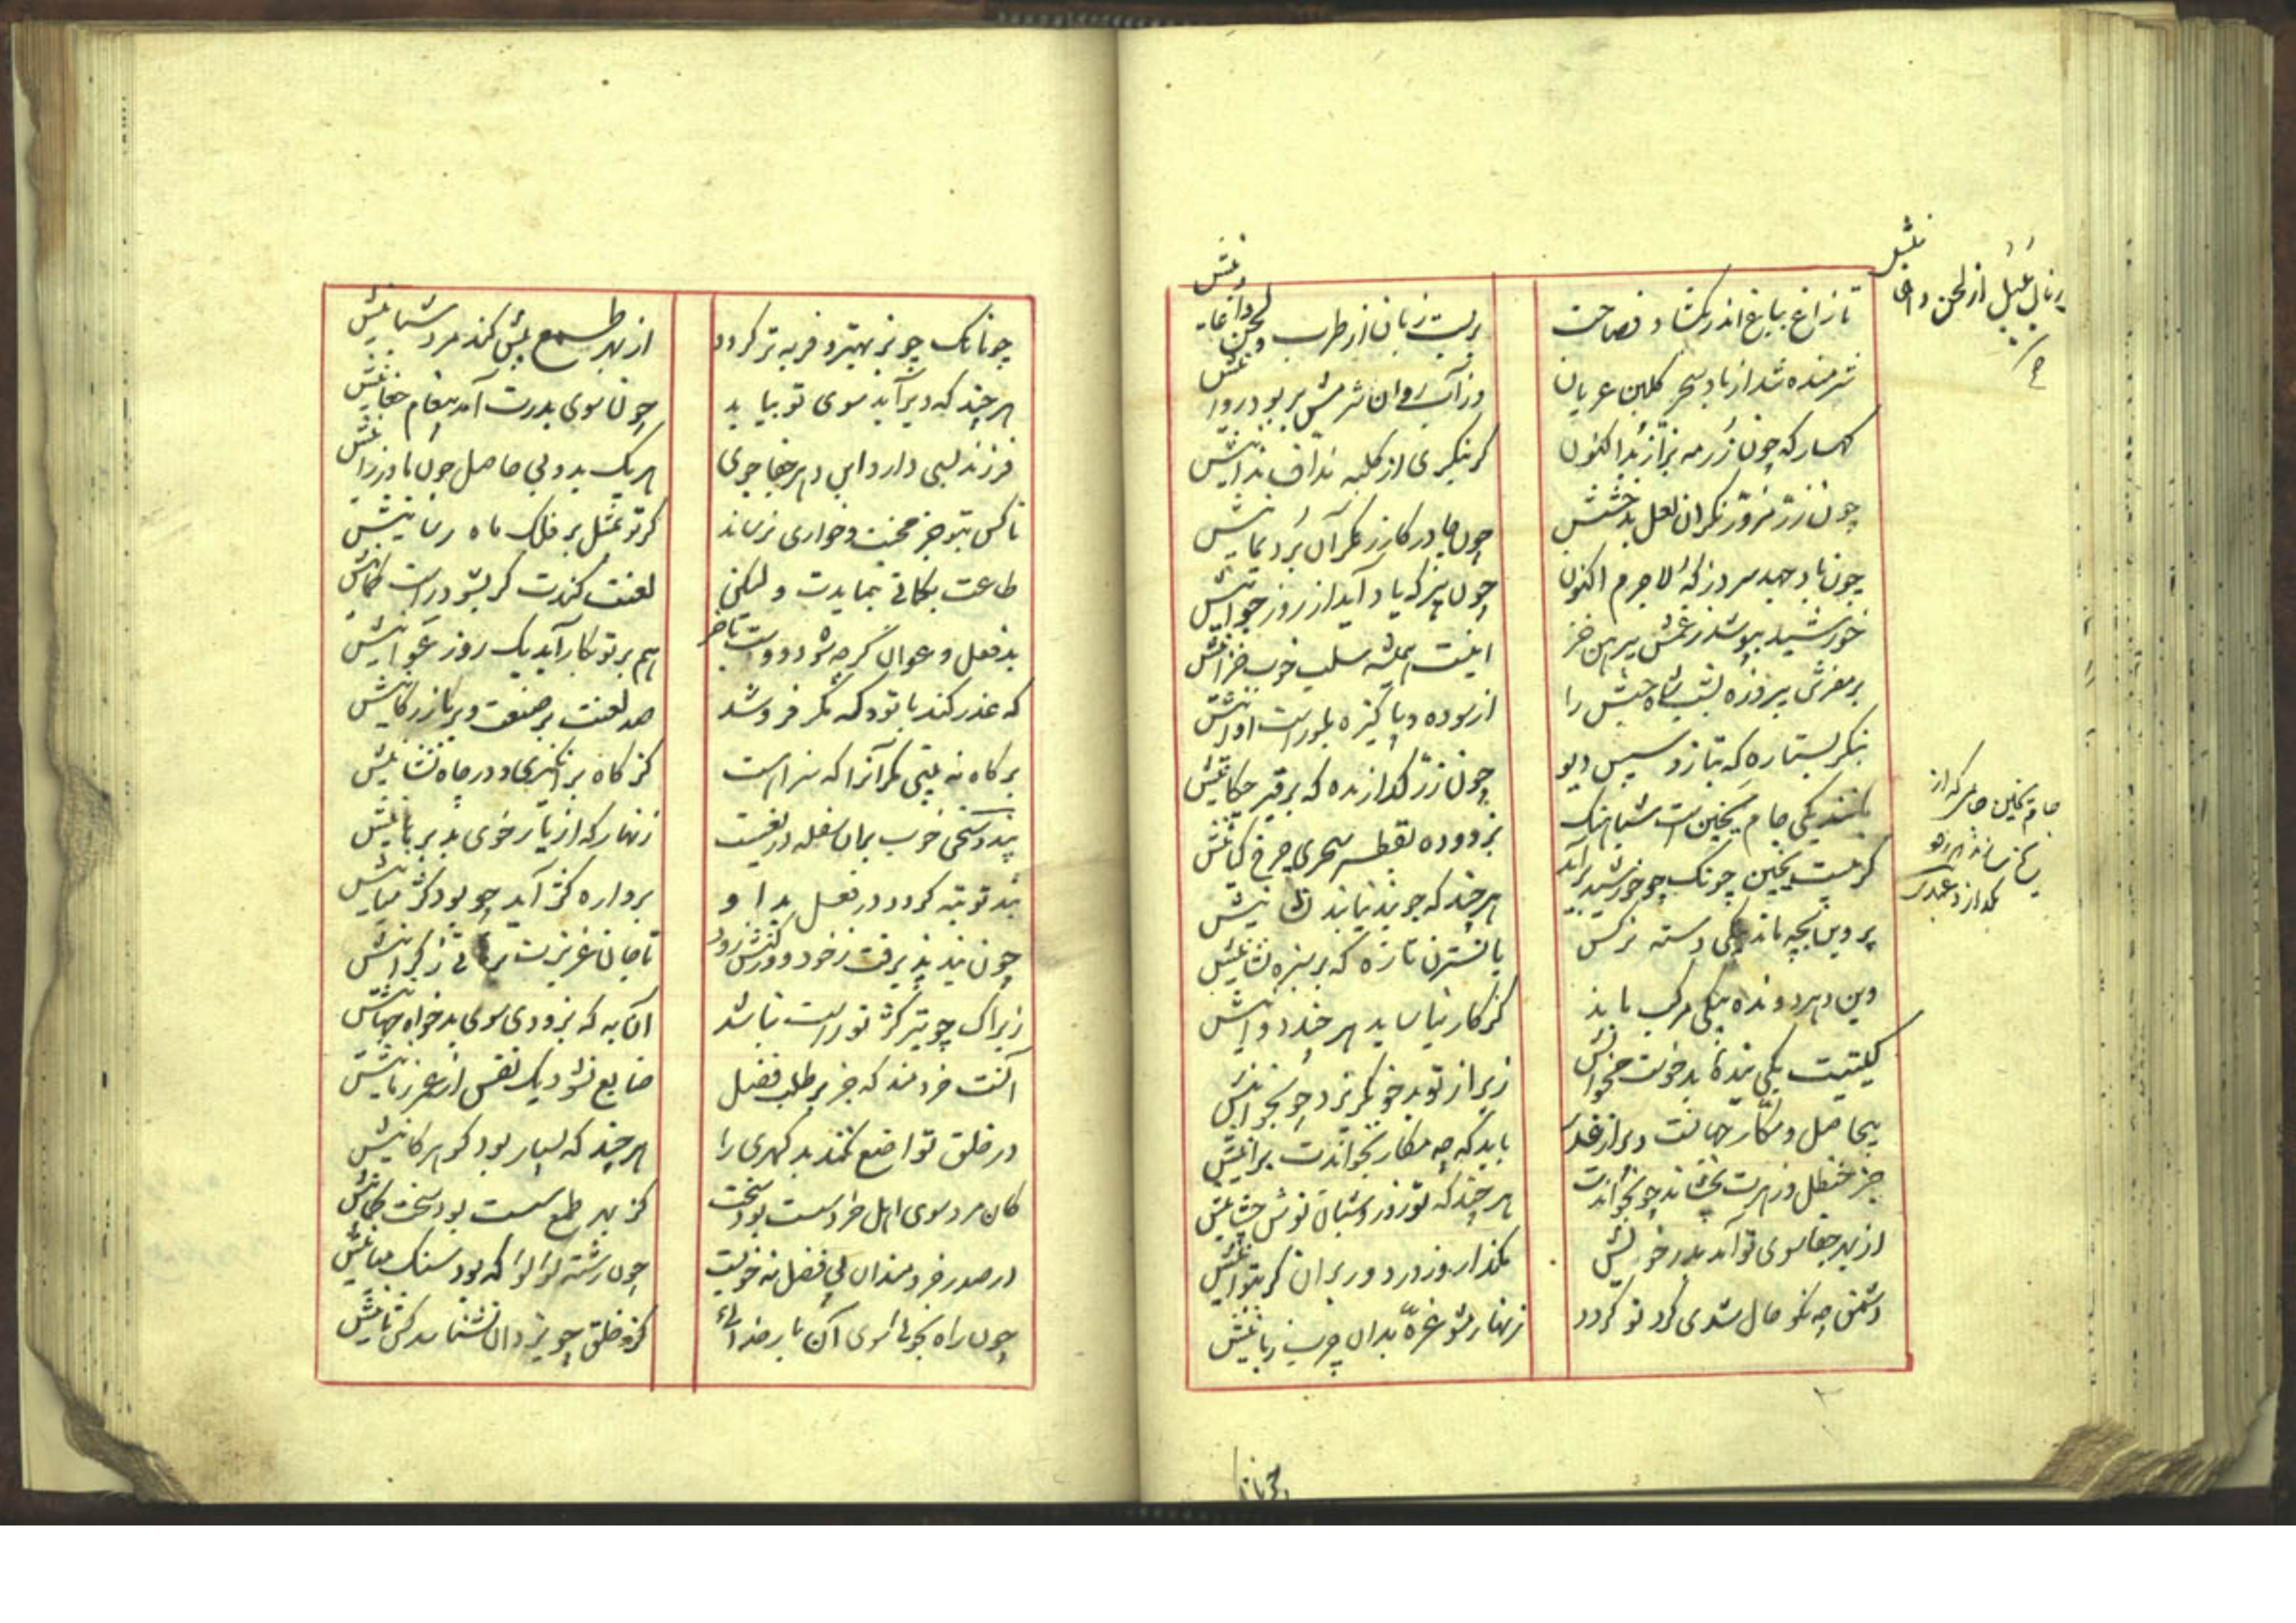 تا زاغ بباغ اندر بگشاد فصاحت
بربست زبان از طرب لحن و اغانیش
شرمنده شد از باد سحر گلبن عریان
وز آب روان شرمش بربود روانیش
کهسار که چون رزمه بزاز بد اکنون
گر بنگری از کلبه نداف ندانیش
چون زر مزور نگر آن لعل بدخشیش
چون چادر گازر نگر آن برد یمانیش
چون باد جهد سرد ز که لاجرم اکنون
چون پیر که یاد آید از روز جوانیش
خورشید بپوشد ز غمش پیرهن خز
اینست همیشه سلب خوب خزانیش
بر مفرش پیروزه بشب شاه حبش را
از سوده و پاکیزه بلورست اوانیش
بنگر بستاره که بتازد سپس دیو
چون زر گدازنده که بر قیر چکانیش
مانند یکی جام یخین است شباهنگ
بزدوده بقطره سحری چرخ کیانیش
گر نیست یخین چونک چو خورشید برآید
هر چند که جویند نیابند نشانیش
پروین بچه ماند بیکی دسته نرگس
یا نسترن تازه که بر سبزه نشانیش
وین دهر دونده بیکی مرکب ماند
کز کار نیاساید هر چند دوانیش
گیتیت یکی بنده بدخوست مخوانش
زیرا ز تو بدخو بگریزد چو بخوانیش
بیحاصل و مکار جهانست و پر از غدر
باید که چو مکار بخواندت برانیش
جز حنظل و زهرت نچشاند چو بخواندت
هر چند که تو روز و شبان نوش چشانیش
از بهر جفا سوی تو آمد بدر خویش
مگذار و ز در دور بران گر بتوانیش
دشمن چو نکو حال شدی گرد تو گردد
زنهار مشو غره بدان چرب زبانیش
چونانک چو بز بهتر و فربه تر گردد
از بهر طمع بیش کند مرد شبانیش
هر چند که دیر آید سوی تو بیاید
چون سوی پدرت آمد پیغام نهانیش
فرزند بسی دارد این دهر جفاجوی
هر یک بد و بی حاصل چون مادر زانیش
ناکس بتو جز محنت و خواری نرساند
گر تو بمثل بر فلک ماه رسانیش
طاعت بگمانی بنمایدت ولیکن
لعنت کندت گر نشود راست گمانیش
بدفعل و عوان گر چه شود دوست بآخر
هم بر تو بکار آید یک روز عوانیش
گه غدر کند با تو و گه مکر فروشد
صد لعنت بر صنعت و بر بازرگانیش
بر گاه نه بینی مگر آنرا که سزا است
کز گاه برانگیزی و در چاه نشانیش
پند و سخن خوب بران سفله دریغست
زنهار که از نیار خوی بد برهانیش
پند تو تبه گردد در فعل بد او
برواره کژ آید چو بود کژ مبانیش
چون پند نپذیرفت ز خود دور کنش زود
تا جان عزیزت برهانی ز گرانیش
زیراک چو تیر کژ تو راست نباشد
آن به که بزودی سوی بدخواه جهانیش
آنست خردمند که جز بر طلب فضل
ضایع نشود یک نفس از عمر زمانیش
در خلق تواضع نکند بد گهری را
هر چند که بسیار بود گوهر کانیش
کان مرد سوی اهل خرد سست بود سخت
کز بهر طمع سست بود سخت کمانیش
در صدر خردمندان بی فضل نه خوبست
چون رشته لولو که بود سنگ میانیش
چون راه بجوئی سوی آن بار خدائی
کز خلق چو یزدان نشناسد کس ثانیش